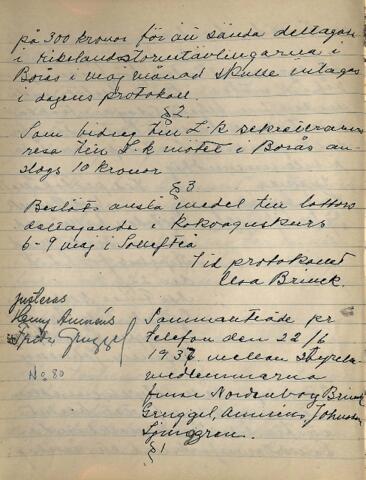 på 300 kronor för att sända deltagare
i rikslandstormtävlingarna i
Borås i maj månad skulle intagas
i dagens protokoll.
§ 2
Som bidrag till L-k sekreterarens
resa till L-k mötet i Borås an-
slogs 10 kronor
§ 3
Beslöts anslå medel till lottors
deltagande i kokvagnskurs
6-9 maj i Sollefteå
Vid protokollet
Brinck.
Justeras
Gruggel
No 80
Sammanträde pr
telefon den 22/6
1937 mellan styrelse-
medlemmarna
fruar Nordenborg Brinck
Gruggel, Amnéus, Johnsson
Ljunggren.
§ 1